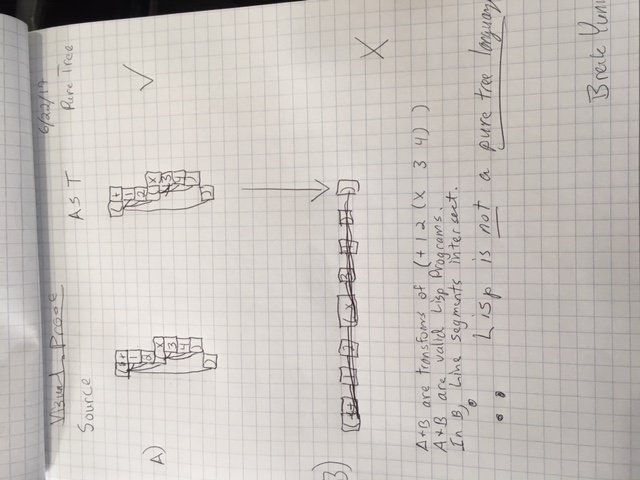 Visual Proof
6/22/17
Source
AST
Pure Tree
A)
( +
1
2
( x
3
4
)
)
( +
1
2
( x
3
4
)
)
B)
( + 1 2 ( x 3 4 ) )
X
A+B are transforms of (+ 1 2 (x 3 4) )
A+B are valid Lisp Programs.
In B, Line segments intersect.
∴ Lisp is not a pure tree languag
Break Yun